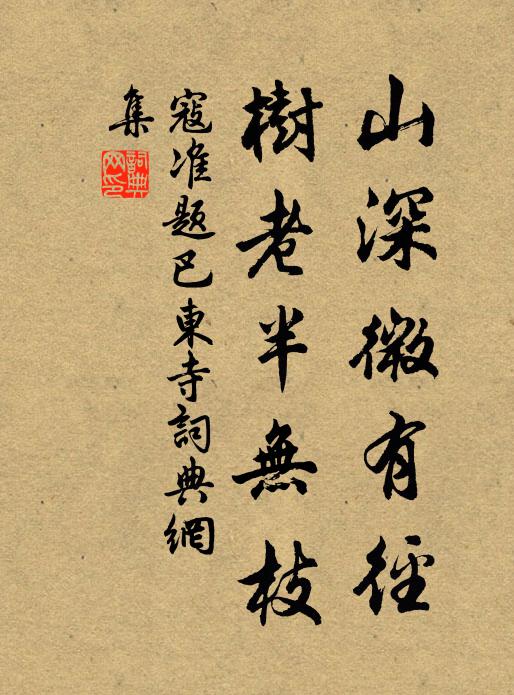 山深微有徑
樹老半無枝
寇准題巴東寺詞典網
集
詞典
网印